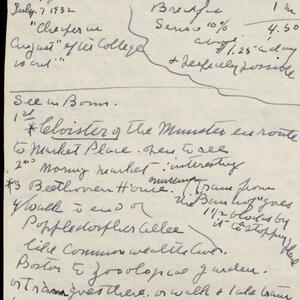 July. 7 1932
"Cheaper in
August" of the College
is art"
Breakfast 1 m
Service 10% 4.50
about $1.25 a day
& perfectly possible
See in Bonn.
1st
* Cloister of the Munster en route
to Market Place. open to all
2nd Morng market - interesting
*3 Beethoven House. museum
Tram from
the Bahnhof goes
1 1/2 blocks by
it to stopping place
4 Walk to end of
Poppelsdorfer Allee
like Commonwealth Ave.
Boston to zoological garden.
or tram goes there. or walk & take tram